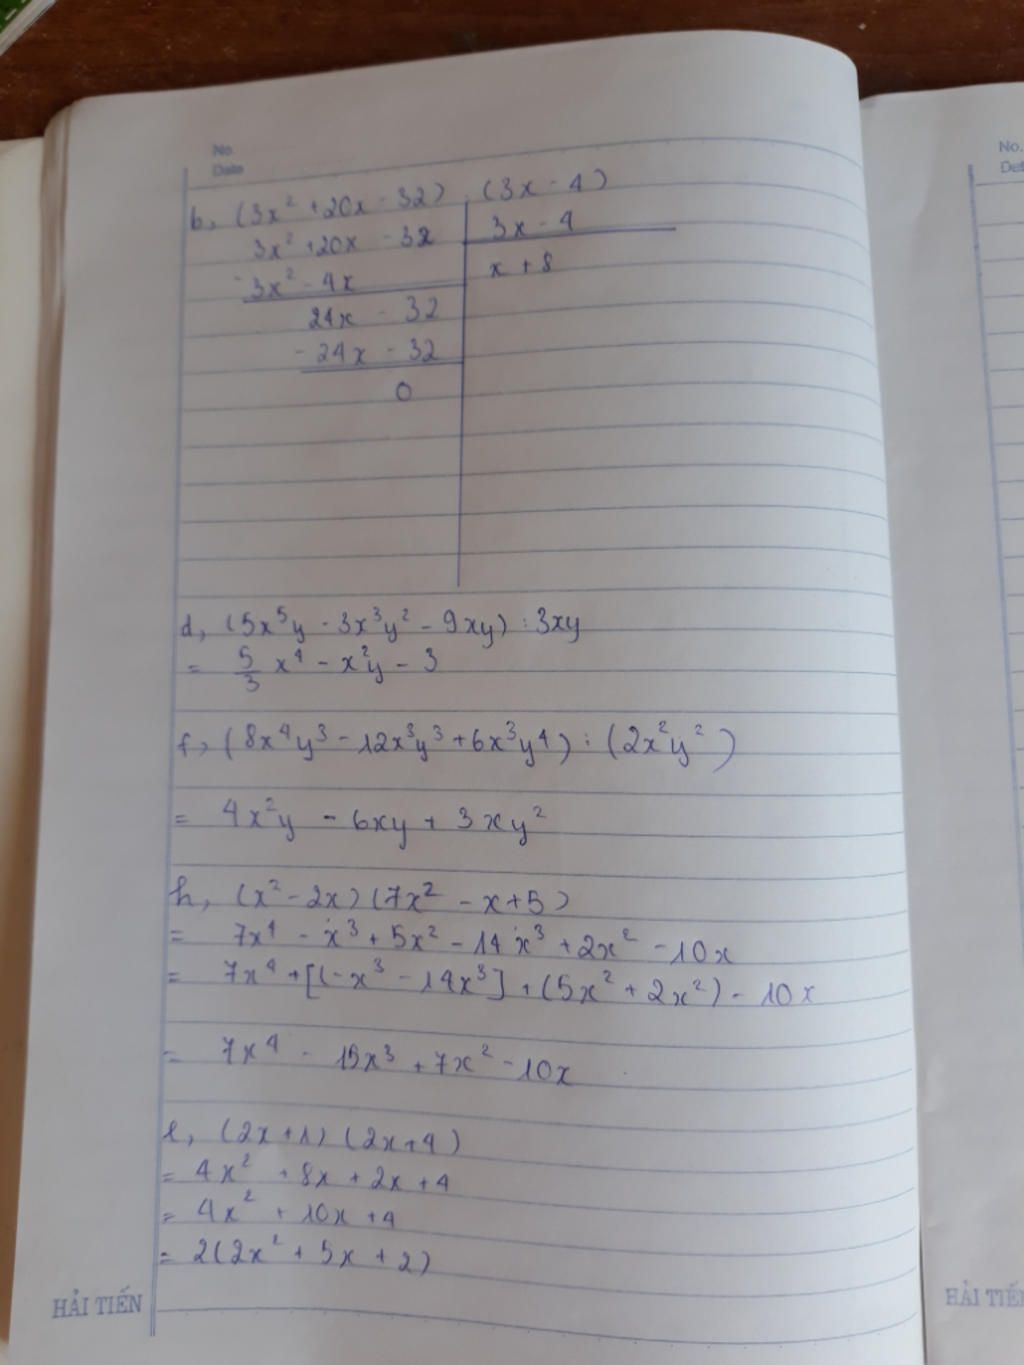 No.
Date
b, (3x² + 20x - 32) : (3x - 4)
3x² + 20x - 32 | 3x - 4
- 3x² - 4x | x + 8
24x - 32
- 24x - 32
0
d, (5x⁵y - 3x³y² - 9xy) : 3xy
= 5/3 x⁴ - x²y - 3
f, (8x⁴y³ - 12x³y³ + 6x³y⁴) : (2x²y²)
= 4x²y - 6xy + 3xy²
h, (x² - 2x) (7x² - x + 5)
= 7x⁴ - x³ + 5x² - 14x³ + 2x² - 10x
= 7x⁴ + [(-x³ - 14x³] + (5x² + 2x²) - 10x
= 7x⁴ - 15x³ + 7x² - 10x
l, (2x + 1) (2x + 4)
= 4x² + 8x + 2x + 4
= 4x² + 10x + 4
= 2(2x² + 5x + 2)
HẢI TIẾN
No.
HẢI TIẾ